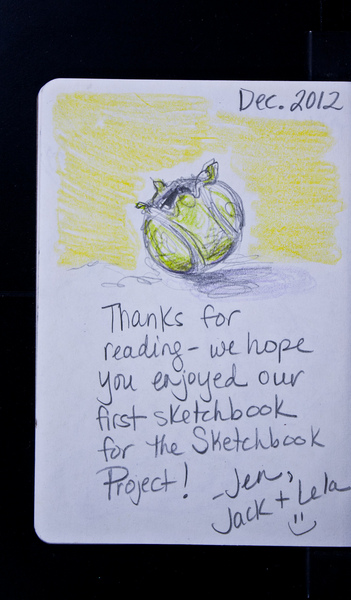 Dec. 2012
Thanks for
reading - we hope
you enjoyed our
first sketchbook
for the Sketchbook
Project!
- Jen,
Jack + Lela